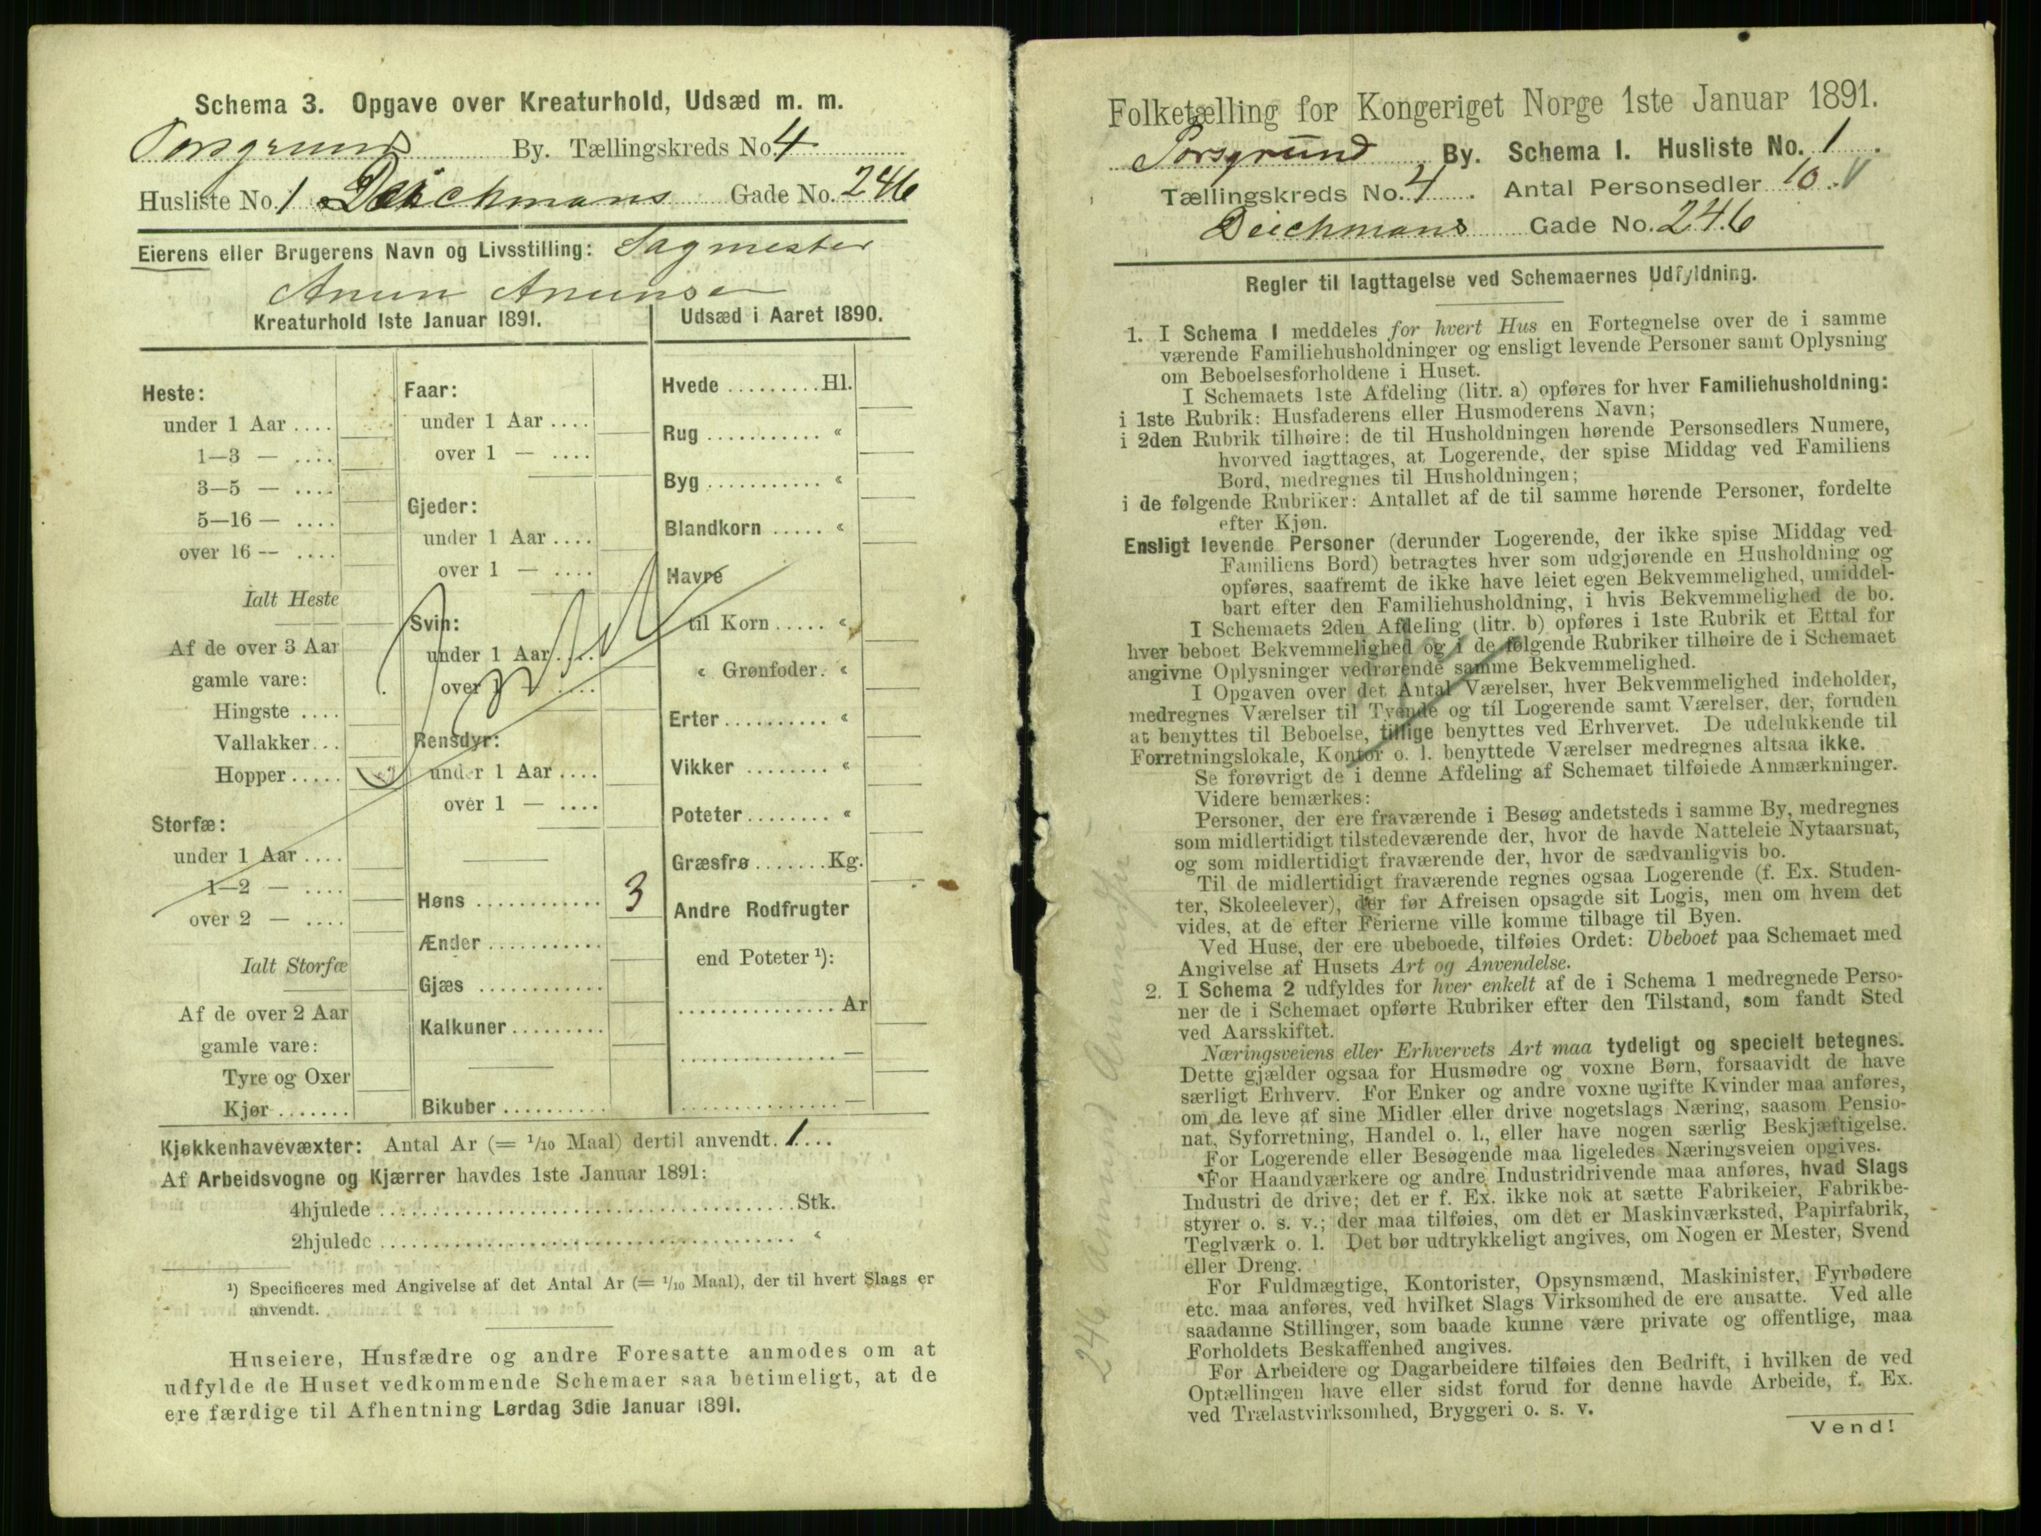 Schema 3. Opgave over Kreaturhold, Udsæd m. m.
Porsgrund By. Tællingskreds No. 4
Husliste No. 1 Deichmans Gade No. 246
Eierens eller Brugerens Navn og Livsstilling: Sagmester
Anun Anunsen
Kreaturhold 1ste Januar 1891.
Heste:
under 1 Aar ....
1—3 — ....
3—5 — ....
5—16 — ....
over 16 — ....
Ialt Heste
Af de over 3 Aar
gamle vare:
Hingste ....
Vallakker...
Hopper .....
Storfæ:
under 1 Aar ....
1—2 — ....
over 2 — ....
Ialt Storfæ
Af de over 2 Aar
gamle vare:
Tyre og Oxer
Kjør .......
Faar:
under 1 Aar ....
over 1 — ....
Gjeder:
under 1 Aar ....
over 1 — ....
Svin:
under 1 Aar ....
over 1 — ....
Rensdyr:
under 1 Aar ....
over 1 — ....
Høns ............ 3
Ænder ...........
Gjæs ............
Kalkuner .........
Bikuber ..........
Udsæd i Aaret 1890.
Hvede ......... Hl.
Rug ........... «
Byg ........... «
Blandkorn ..... «
Havre
til Korn ..... «
« Grønfoder. «
Erter .......... «
Vikker ........ «
Poteter ........ «
Græsfrø ....... Kg.
Andre Rodfrugter
end Poteter ¹):
............... Ar
............... —
............... —
Kjøkkenhavevæxter: Antal Ar (= 1/10 Maal) dertil anvendt. 1...
Af Arbeidsvogne og Kjærrer havdes 1ste Januar 1891:
4hjulede ........................................ Stk.
2hjulede ........................................ «
¹) Specificeres med Angivelse af det Antal Ar (= 1/10 Maal), der til hvert Slags er
anvendt.
Huseiere, Husfædre og andre Foresatte anmodes om at
udfylde de Huset vedkommende Schemaer saa betimeligt, at de
ere færdige til Afhentning Lørdag 3die Januar 1891.
Folketælling for Kongeriget Norge 1ste Januar 1891.
Porsgrund By. Schema 1. Husliste No. 1.
Tællingskreds No. 4. Antal Personsedler 10.
Deichmans Gade No. 246
Regler til Iagttagelse ved Schemaernes Udfyldning.
1. I Schema 1 meddeles for hvert Hus en Fortegnelse over de i samme
værende Familiehusholdninger og ensligt levende Personer samt Oplysning
om Beboelsesforholdene i Huset.
I Schemaets 1ste Afdeling (litr. a) opføres for hver Familiehusholdning:
i 1ste Rubrik: Husfaderens eller Husmoderens Navn;
i 2den Rubrik tilhøire: de til Husholdningen hørende Personsedlers Numere,
hvorved iagttages, at Logerende, der spise Middag ved Familiens
Bord, medregnes til Husholdningen;
i de følgende Rubriker: Antallet af de til samme hørende Personer, fordelte
efter Kjøn.
Ensligt levende Personer (derunder Logerende, der ikke spise Middag ved
Familiens Bord) betragtes hver som udgjørende en Husholdning og
opføres, saafremt de ikke have leiet egen Bekvemmelighed, umiddel-
bart efter den Familiehusholdning, i hvis Bekvemmelighed de bo.
I Schemaets 2den Afdeling (litr. b) opføres i 1ste Rubrik et Ettal for
hver beboet Bekvemmelighed og i de følgende Rubriker tilhøire de i Schemaet
angivne Oplysninger vedrørende samme Bekvemmelighed.
I Opgaven over det Antal Værelser, hver Bekvemmelighed indeholder,
medregnes Værelser til Tyende og til Logerende samt Værelser, der, foruden
at benyttes til Beboelse, tillige benyttes ved Erhvervet. De udelukkende til
Forretningslokale, Kontor o. l. benyttede Værelser medregnes altsaa ikke.
Se forøvrigt de i denne Afdeling af Schemaet tilføiede Anmærkninger.
Videre bemærkes:
Personer, der ere fraværende i Besøg andetsteds i samme By, medregnes
som midlertidigt tilstedeværende der, hvor de havde Natteleie Nytaarsnat,
og som midlertidigt fraværende der, hvor de sædvanligvis bo.
Til de midlertidigt fraværende regnes ogsaa Logerende (f. Ex. Studen-
ter, Skoleelever), der før Afreisen opsagde sit Logis, men om hvem det
vides, at de efter Ferierne ville komme tilbage til Byen.
Ved Huse, der ere ubeboede, tilføies Ordet: Ubeboet paa Schemaet med
Angivelse af Husets Art og Anvendelse.
2. I Schema 2 udfyldes for hver enkelt af de i Schema 1 medregnede Perso-
ner de i Schemaet opførte Rubriker efter den Tilstand, som fandt Sted
ved Aarsskiftet.
Næringsveiens eller Erhvervets Art maa tydeligt og specielt betegnes.
Dette gjælder ogsaa for Husmødre og voxne Børn, forsaavidt de have
særligt Erhverv. For Enker og andre voxne ugifte Kvinder maa anføres,
om de leve af sine Midler eller drive nogetslags Næring, saasom Pensio-
nat, Syforretning, Handel o. l., eller have nogen særlig Beskjæftigelse.
For Logerende eller Besøgende maa ligeledes Næringsveien opgives.
For Haandværkere og andre Industridrivende maa anføres, hvad Slags
Industri de drive; det er f. Ex. ikke nok at sætte Fabrikeier, Fabrikbe-
styrer o. s. v.; der maa tilføies, om det er Maskinværksted, Papirfabrik,
Teglværk o. l. Det bør udtrykkeligt angives, om Nogen er Mester, Svend
eller Dreng.
For Fuldmægtige, Kontorister, Opsynsmænd, Maskinister, Fyrbødere
etc. maa anføres, ved hvilket Slags Virksomhed de ere ansatte. Ved alle
saadanne Stillinger, som baade kunne være private og offentlige, maa
Forholdets Beskaffenhed angives.
For Arbeidere og Dagarbeidere tilføies den Bedrift, i hvilken de ved
Optællingen have eller sidst forud for denne havde Arbeide, f. Ex.
ved Trælastvirksomhed, Bryggeri o. s. v.
Vend!
246